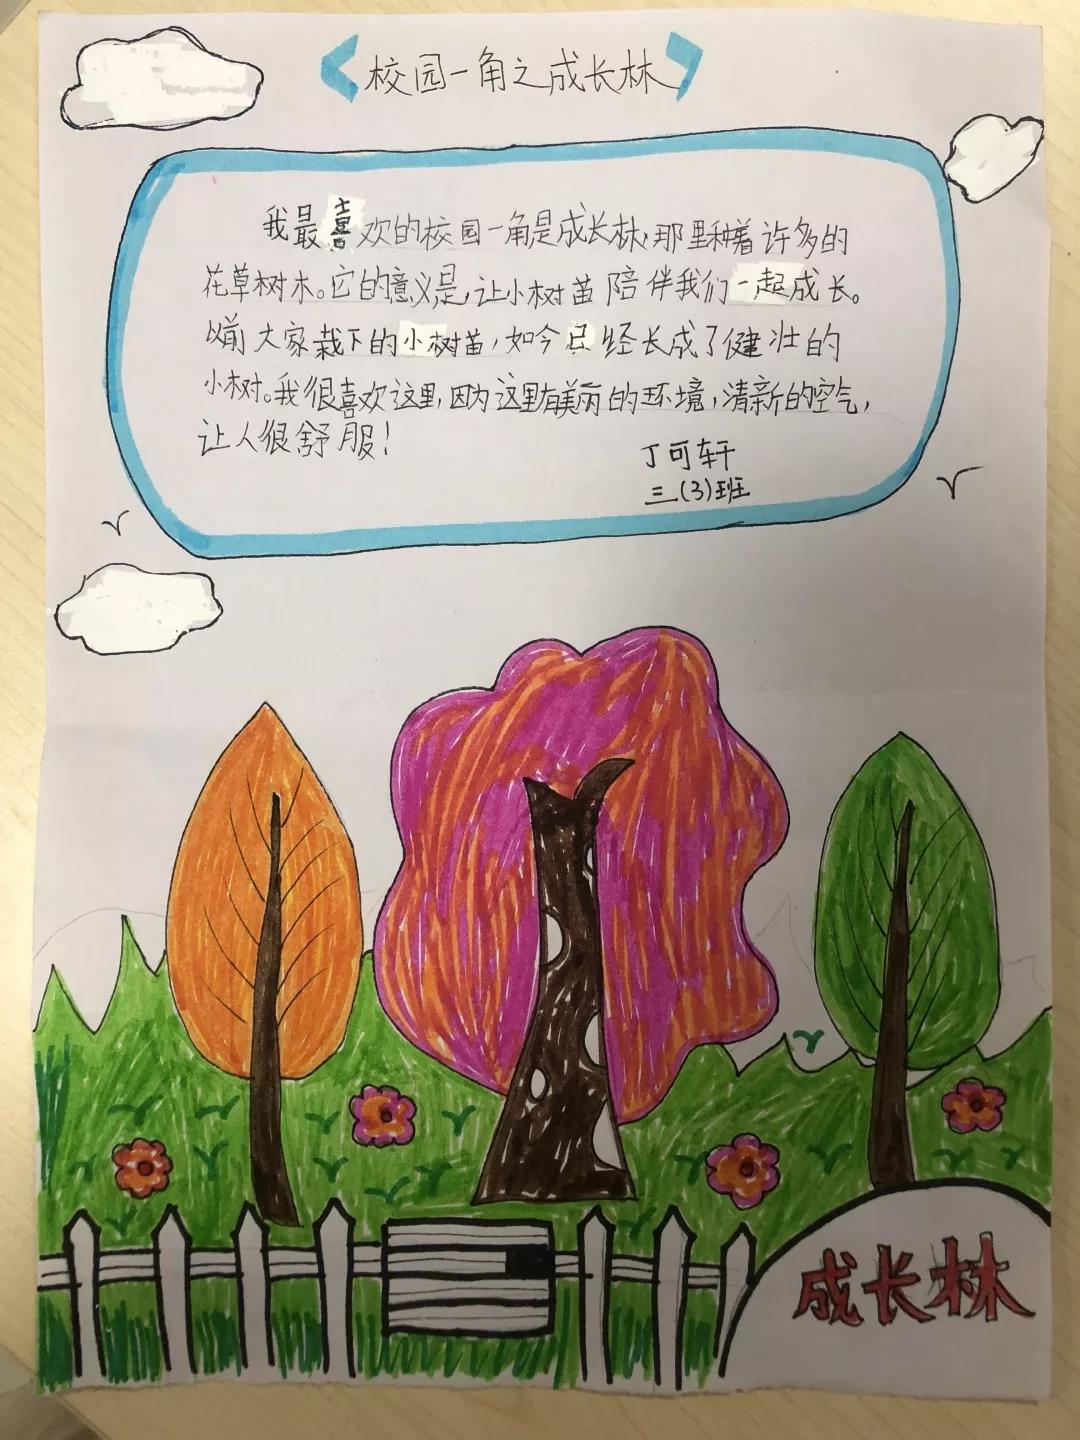 《校园一角之成长林》
我最喜欢的校园一角是成长林,那里种着许多的
花草树木。它的意义是,让小树苗陪伴我们一起成长。
以前大家栽下的小树苗,如今已经长成了健壮的
小树。我很喜欢这里,因为这里有美丽的环境,清新的空气,
让人很舒服!
丁可轩
三(3)班
成长林